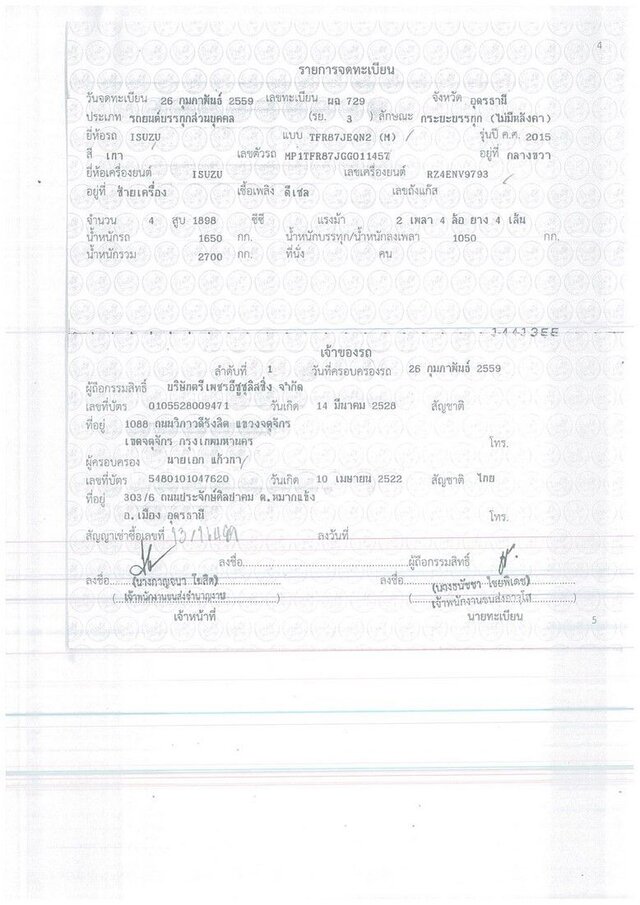 4
รายการจดทะเบียน
วันจดทะเบียน 26 กุมภาพันธ์ 2559 เลขทะเบียน ผฉ 729 จังหวัด อุดรธานี
ประเภท รถยนต์บรรทุกส่วนบุคคล (รย. 3 ) ลักษณะ กระบะบรรทุก (ไม่มีหลังคา)
ยี่ห้อรถ ISUZU แบบ TFR87JEQN2 (M) รุ่นปี ค.ศ. 2015
สี เทา เลขตัวรถ MP1TFR87JGG011457 อยู่ที่ กลางขวา
ยี่ห้อเครื่องยนต์ ISUZU เลขเครื่องยนต์ RZ4ENV9793
อยู่ที่ ซ้ายเครื่อง เชื้อเพลิง ดีเซล เลขถังแก๊ส
จำนวน 4 สูบ 1898 ซีซี แรงม้า 2 เพลา 4 ล้อ ยาง 4 เส้น
น้ำหนักรถ 1650 กก. น้ำหนักบรรทุก/น้ำหนักลงเพลา 1050 กก.
น้ำหนักรวม 2700 กก. ที่นั่ง คน
เจ้าของรถ
ลำดับที่ 1 วันที่ครอบครองรถ 26 กุมภาพันธ์ 2559
ผู้ถือกรรมสิทธิ์ บริษัทตรีเพชรอีซูซุลิสซิ่ง จำกัด
เลขที่บัตร 0105528009471 วันเกิด 14 มีนาคม 2528 สัญชาติ
ที่อยู่ 1088 ถนนวิภาวดีรังสิต แขวงจตุจักร
เขตจตุจักร กรุงเทพมหานคร โทร.
ผู้ครอบครอง นายเอก แก้วกา
เลขที่บัตร 5480101047620 วันเกิด 10 เมษายน 2522 สัญชาติ ไทย
ที่อยู่ 303/6 ถนนประจักษ์ศิลปาคม ต.หมากแข้ง
อ.เมือง อุดรธานี โทร.
สัญญาเช่าซื้อเลขที่ ลงวันที่
ลงชื่อ ผู้ถือกรรมสิทธิ์
ลงชื่อ (นางกาญจนา โฆสิต) ลงชื่อ (นางธนัชชา ไชยพิเดช)
(เจ้าพนักงานขนส่งชำนาญงาน) (เจ้าพนักงานขนส่งอาวุโส)
เจ้าหน้าที่ นายทะเบียน
5